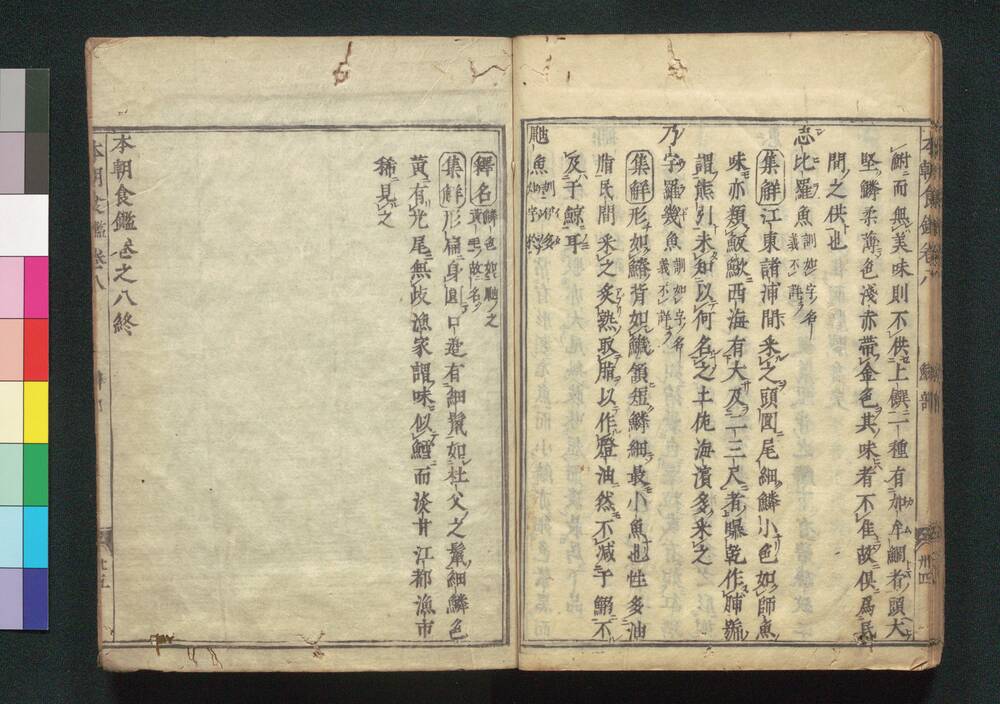 本朝食鑑卷八
鱗部
卅四
鮒而無美味則不供上饌二種有加牟鯛者頭大
堅鱗柔薄色淺赤帶金色其味者不佳故俱爲民
間之供也
志比羅魚訓如字名義不詳
集解江東諸浦間釆之頭圓尾細鱗小色如師魚
味亦類鰤歟西海有大及二三尺者曝乾作脯號
謂熊引未知以何名之土佐海濱多釆之
乃字羅幾魚訓如字名義不詳
集解形如鰷背如鱵頷短鱗細最小魚也性多油
脂民間釆之炙熟取脂以作燈油然不减于鰯不
及于鯨耳
魚訓
釋名鱗色如之黃黑故名
集解形扁身圓口有細鬚如杜父之鬚細鱗色
黃有光尾無歧漁家謂味似鱈而淡甘江都漁市
稀見之
本朝食鑑卷之八終
本朝食鑑卷八
卅五